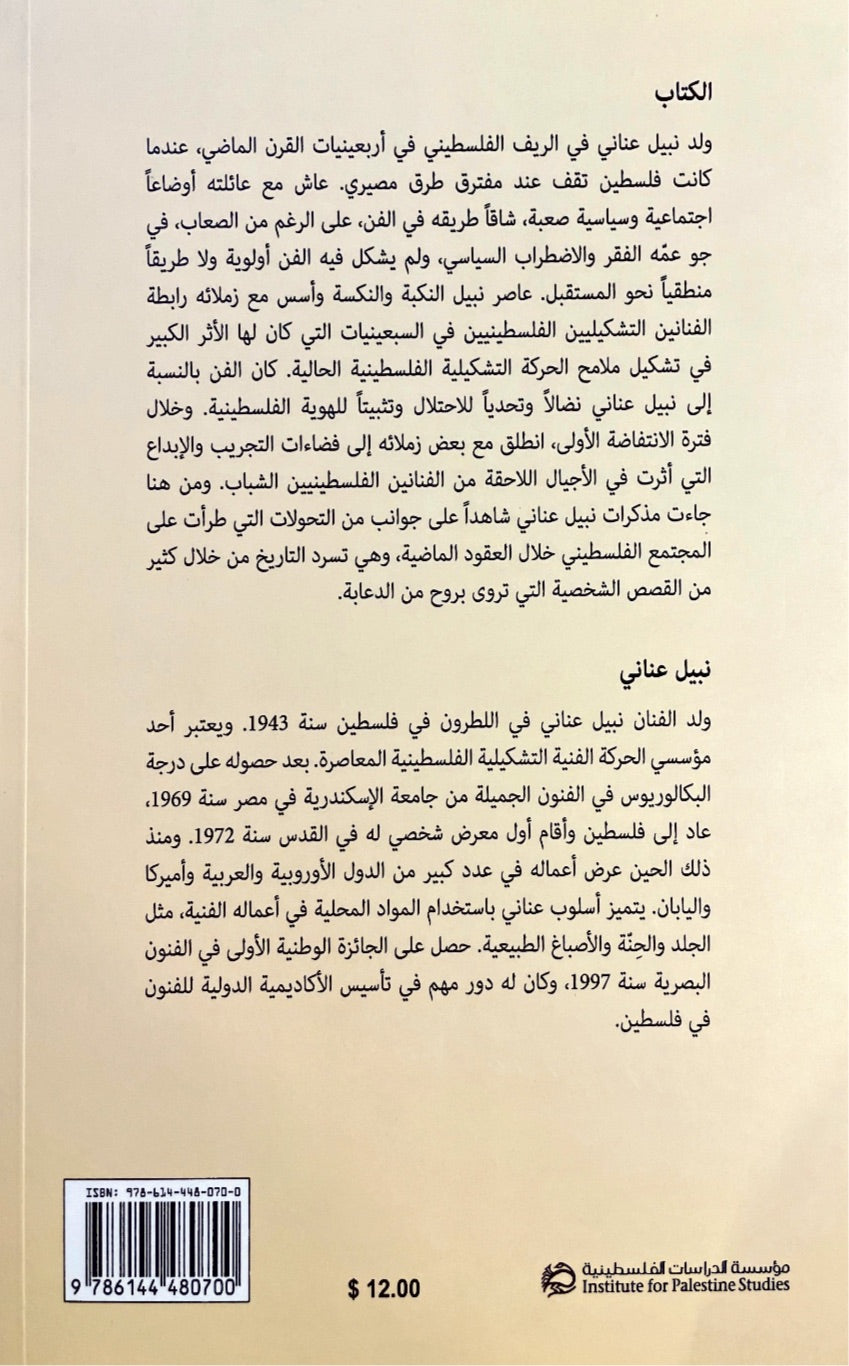 الكتاب
ولد نبيل عناني في الريف الفلسطيني في أربعينيات القرن الماضي، عندما
كانت فلسطين تقف عند مفترق طرق مصيري. عاش مع عائلته أوضاعاً
اجتماعية وسياسية صعبة، شاقاً طريقه في الفن، على الرغم من الصعاب، في
جو عمّه الفقر والاضطراب السياسي، ولم يشكل فيه الفن أولوية ولا طريقاً
منطقياً نحو المستقبل. عاصر نبيل النكبة والنكسة وأسس مع زملائه رابطة
الفنانين التشكيليين الفلسطينيين في السبعينيات التي كان لها الأثر الكبير
في تشكيل ملامح الحركة التشكيلية الفلسطينية الحالية. كان الفن بالنسبة
إلى نبيل عناني نضالاً وتحدياً للاحتلال وتثبيتاً للهوية الفلسطينية. وخلال
فترة الانتفاضة الأولى، انطلق مع بعض زملائه إلى فضاءات التجريب والإبداع
التي أثرت في الأجيال اللاحقة من الفنانين الفلسطينيين الشباب. ومن هنا
جاءت مذكرات نبيل عناني شاهداً على جوانب من التحولات التي طرأت على
المجتمع الفلسطيني خلال العقود الماضية، وهي تسرد التاريخ من خلال كثير
من القصص الشخصية التي تروى بروح من الدعابة.
نبيل عناني
ولد الفنان نبيل عناني في اللطرون في فلسطين سنة 1943. ويعتبر أحد
مؤسسي الحركة الفنية التشكيلية الفلسطينية المعاصرة. بعد حصوله على درجة
البكالوريوس في الفنون الجميلة من جامعة الإسكندرية في مصر سنة 1969،
عاد إلى فلسطين وأقام أول معرض شخصي له في القدس سنة 1972. ومنذ
ذلك الحين عرض أعماله في عدد كبير من الدول الأوروبية والعربية وأميركا
واليابان. يتميز أسلوب عناني باستخدام المواد المحلية في أعماله الفنية، مثل
الجلد والحِنّة والأصباغ الطبيعية. حصل على الجائزة الوطنية الأولى في الفنون
البصرية سنة 1997، وكان له دور مهم في تأسيس الأكاديمية الدولية للفنون
في فلسطين.
ISBN: 978-614-448-070-0
9 786144 480700
$ 12.00
مؤسسة الدراسات الفلسطينية
Institute for Palestine Studies